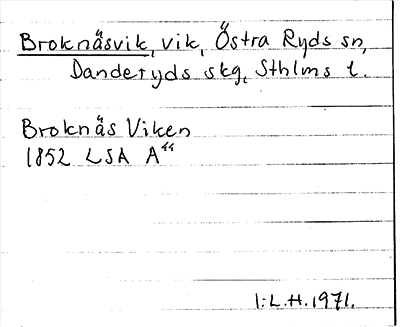 Broknäsvik, vik, Östra Ryds sn,
Danderyds skg, Sthlms l.
Broknäs Viken
1852 LSA A⁴⁴
1:L.H.1971.